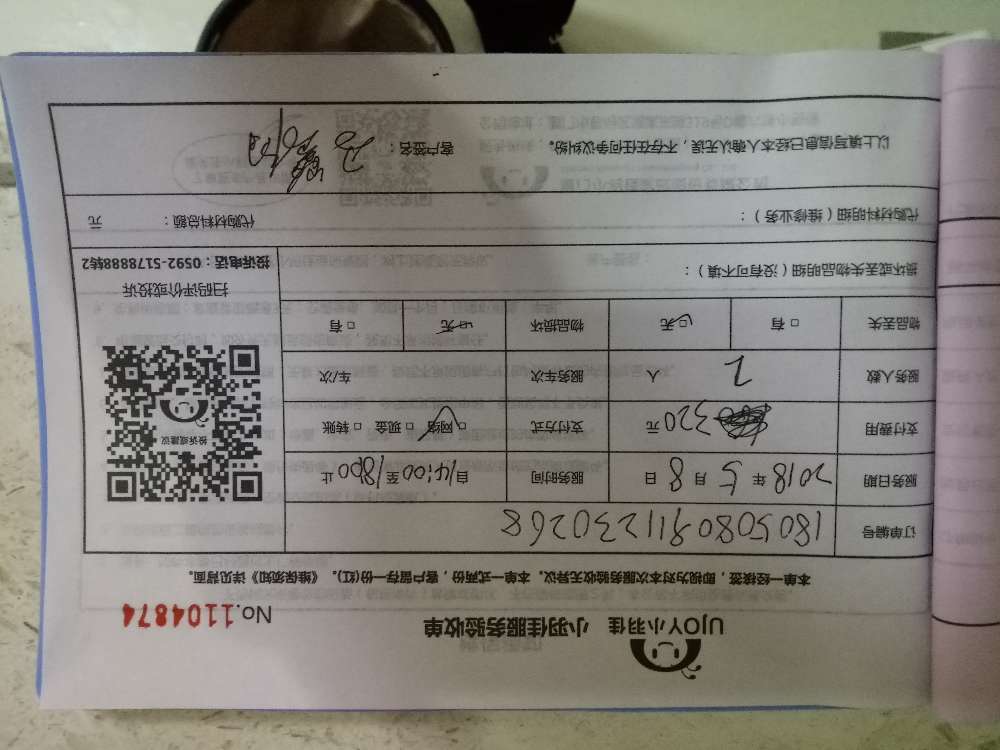 UJOY小羽佳 小羽佳服务验收单 No.1104874
本单一经接签，即视为对本次服务验收无异议。本单一式两份，客户留存一份(红)。《维保须知》详见背面。
订单编号 1805080911230268
服务日期 2018年5月8日 服务时间 自14:00至1800止
支付费用 320元 支付方式 □网络 □现金 □转账
服务人数 2人 服务车次 车/次
物品丢失 □有 □无 物品损坏 □有 □无
投诉或建议
扫码评价或投诉
投诉电话：0592-5178888转2
损坏或丢失物品明细（没有可不填）：
代购材料明细（维修业务）： 代购材料总额： 元
以上填写信息已经本人确认无误，不存在任何争议纠纷。 客户签名：